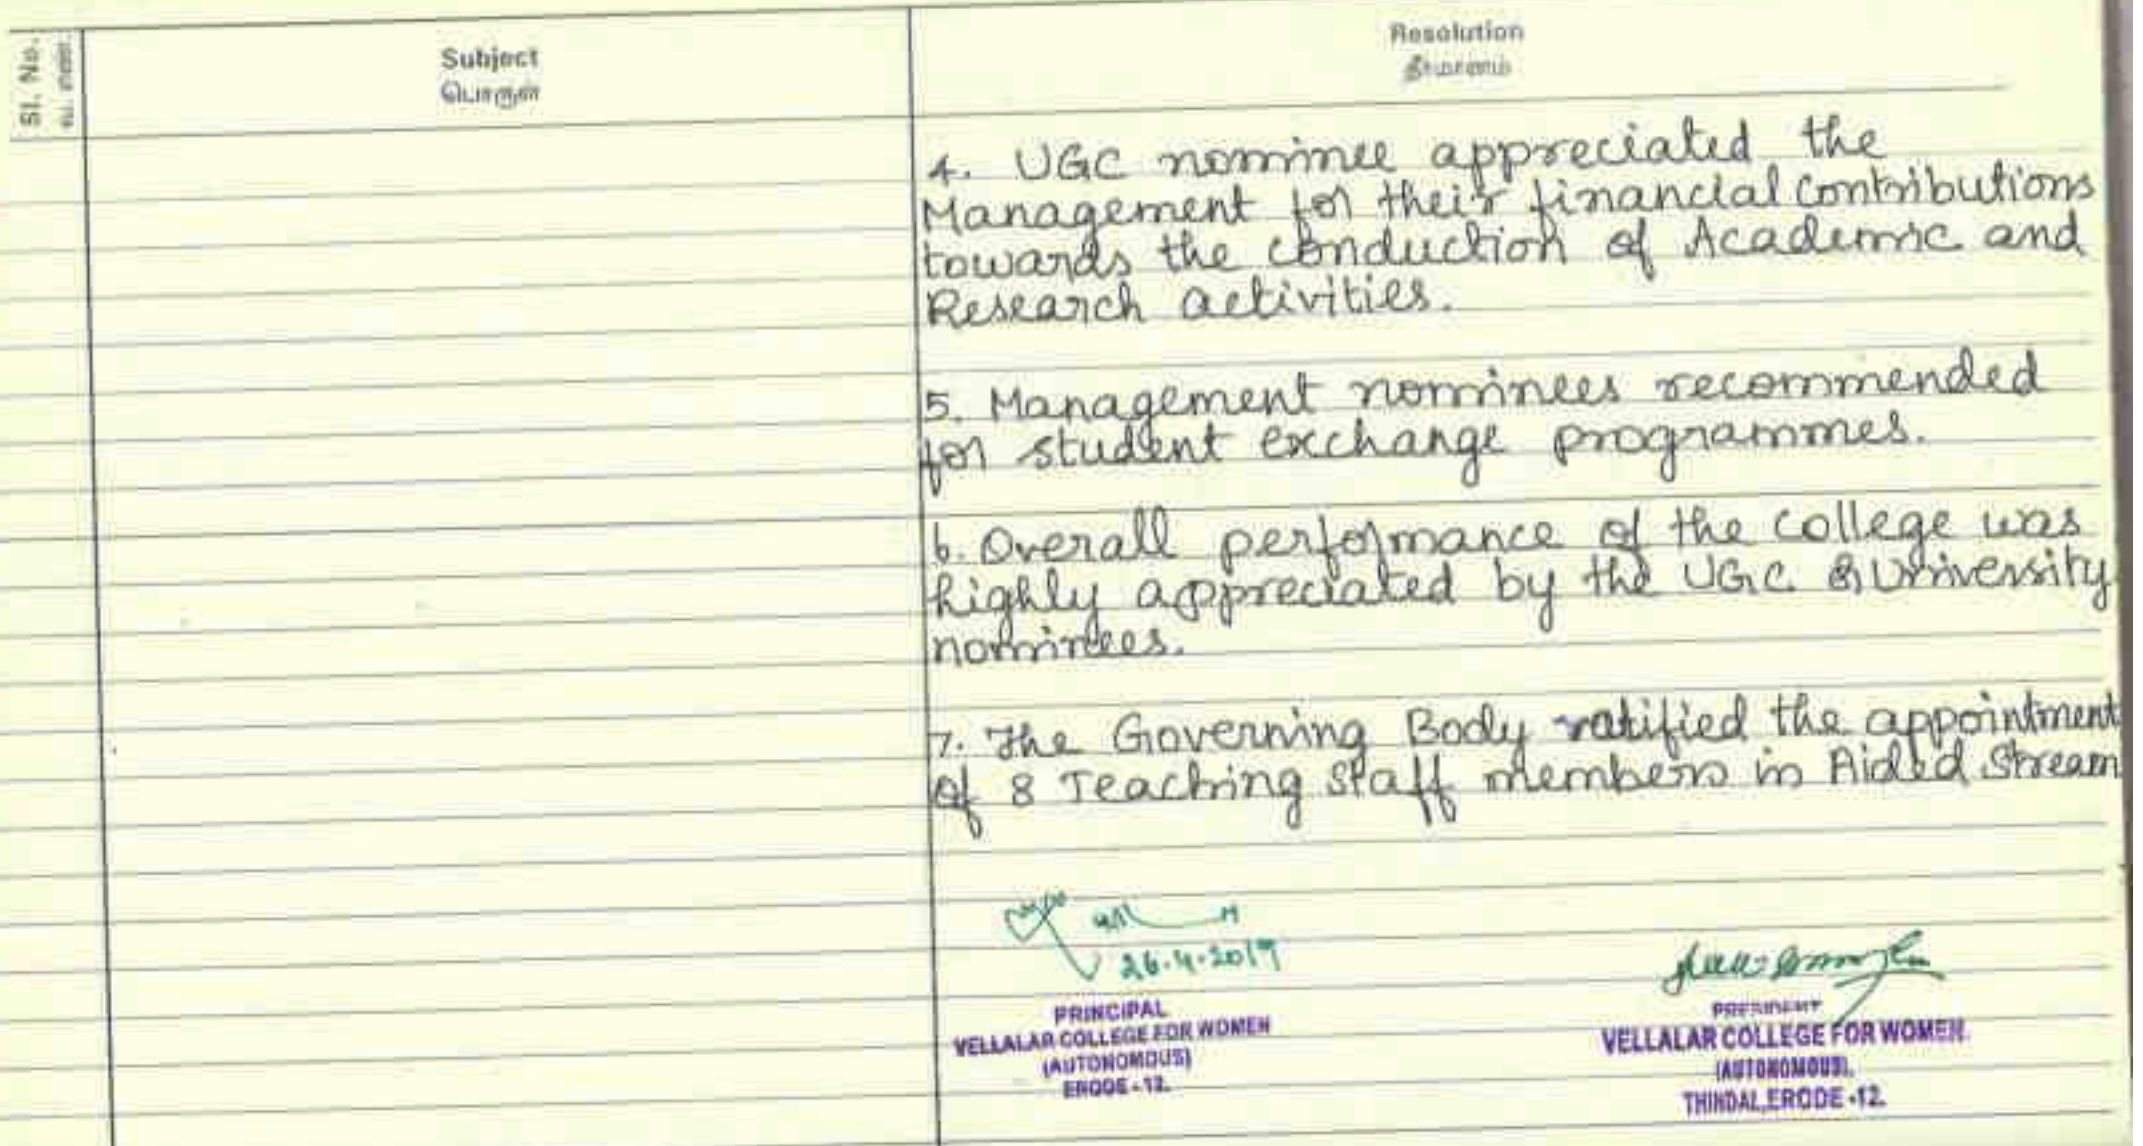 Sl. No.
வ. எண்.
Subject
பொருள்
Resolution
தீர்மானம்
4. UGC nominee appreciated the
Management for their financial contributions
towards the conduction of Academic and
Research activities.
5. Management nominees recommended
for student exchange programmes.
6. Overall performance of the college was
highly appreciated by the UGC & University
nominees.
7. The Governing Body ratified the appointment
of 8 Teaching staff members in Aided Stream
26.4.2019
PRINCIPAL
VELLALAR COLLEGE FOR WOMEN
(AUTONOMOUS)
ERODE - 12.
PRESIDENT
VELLALAR COLLEGE FOR WOMEN.
(AUTONOMOUS),
THINDAL, ERODE -12.